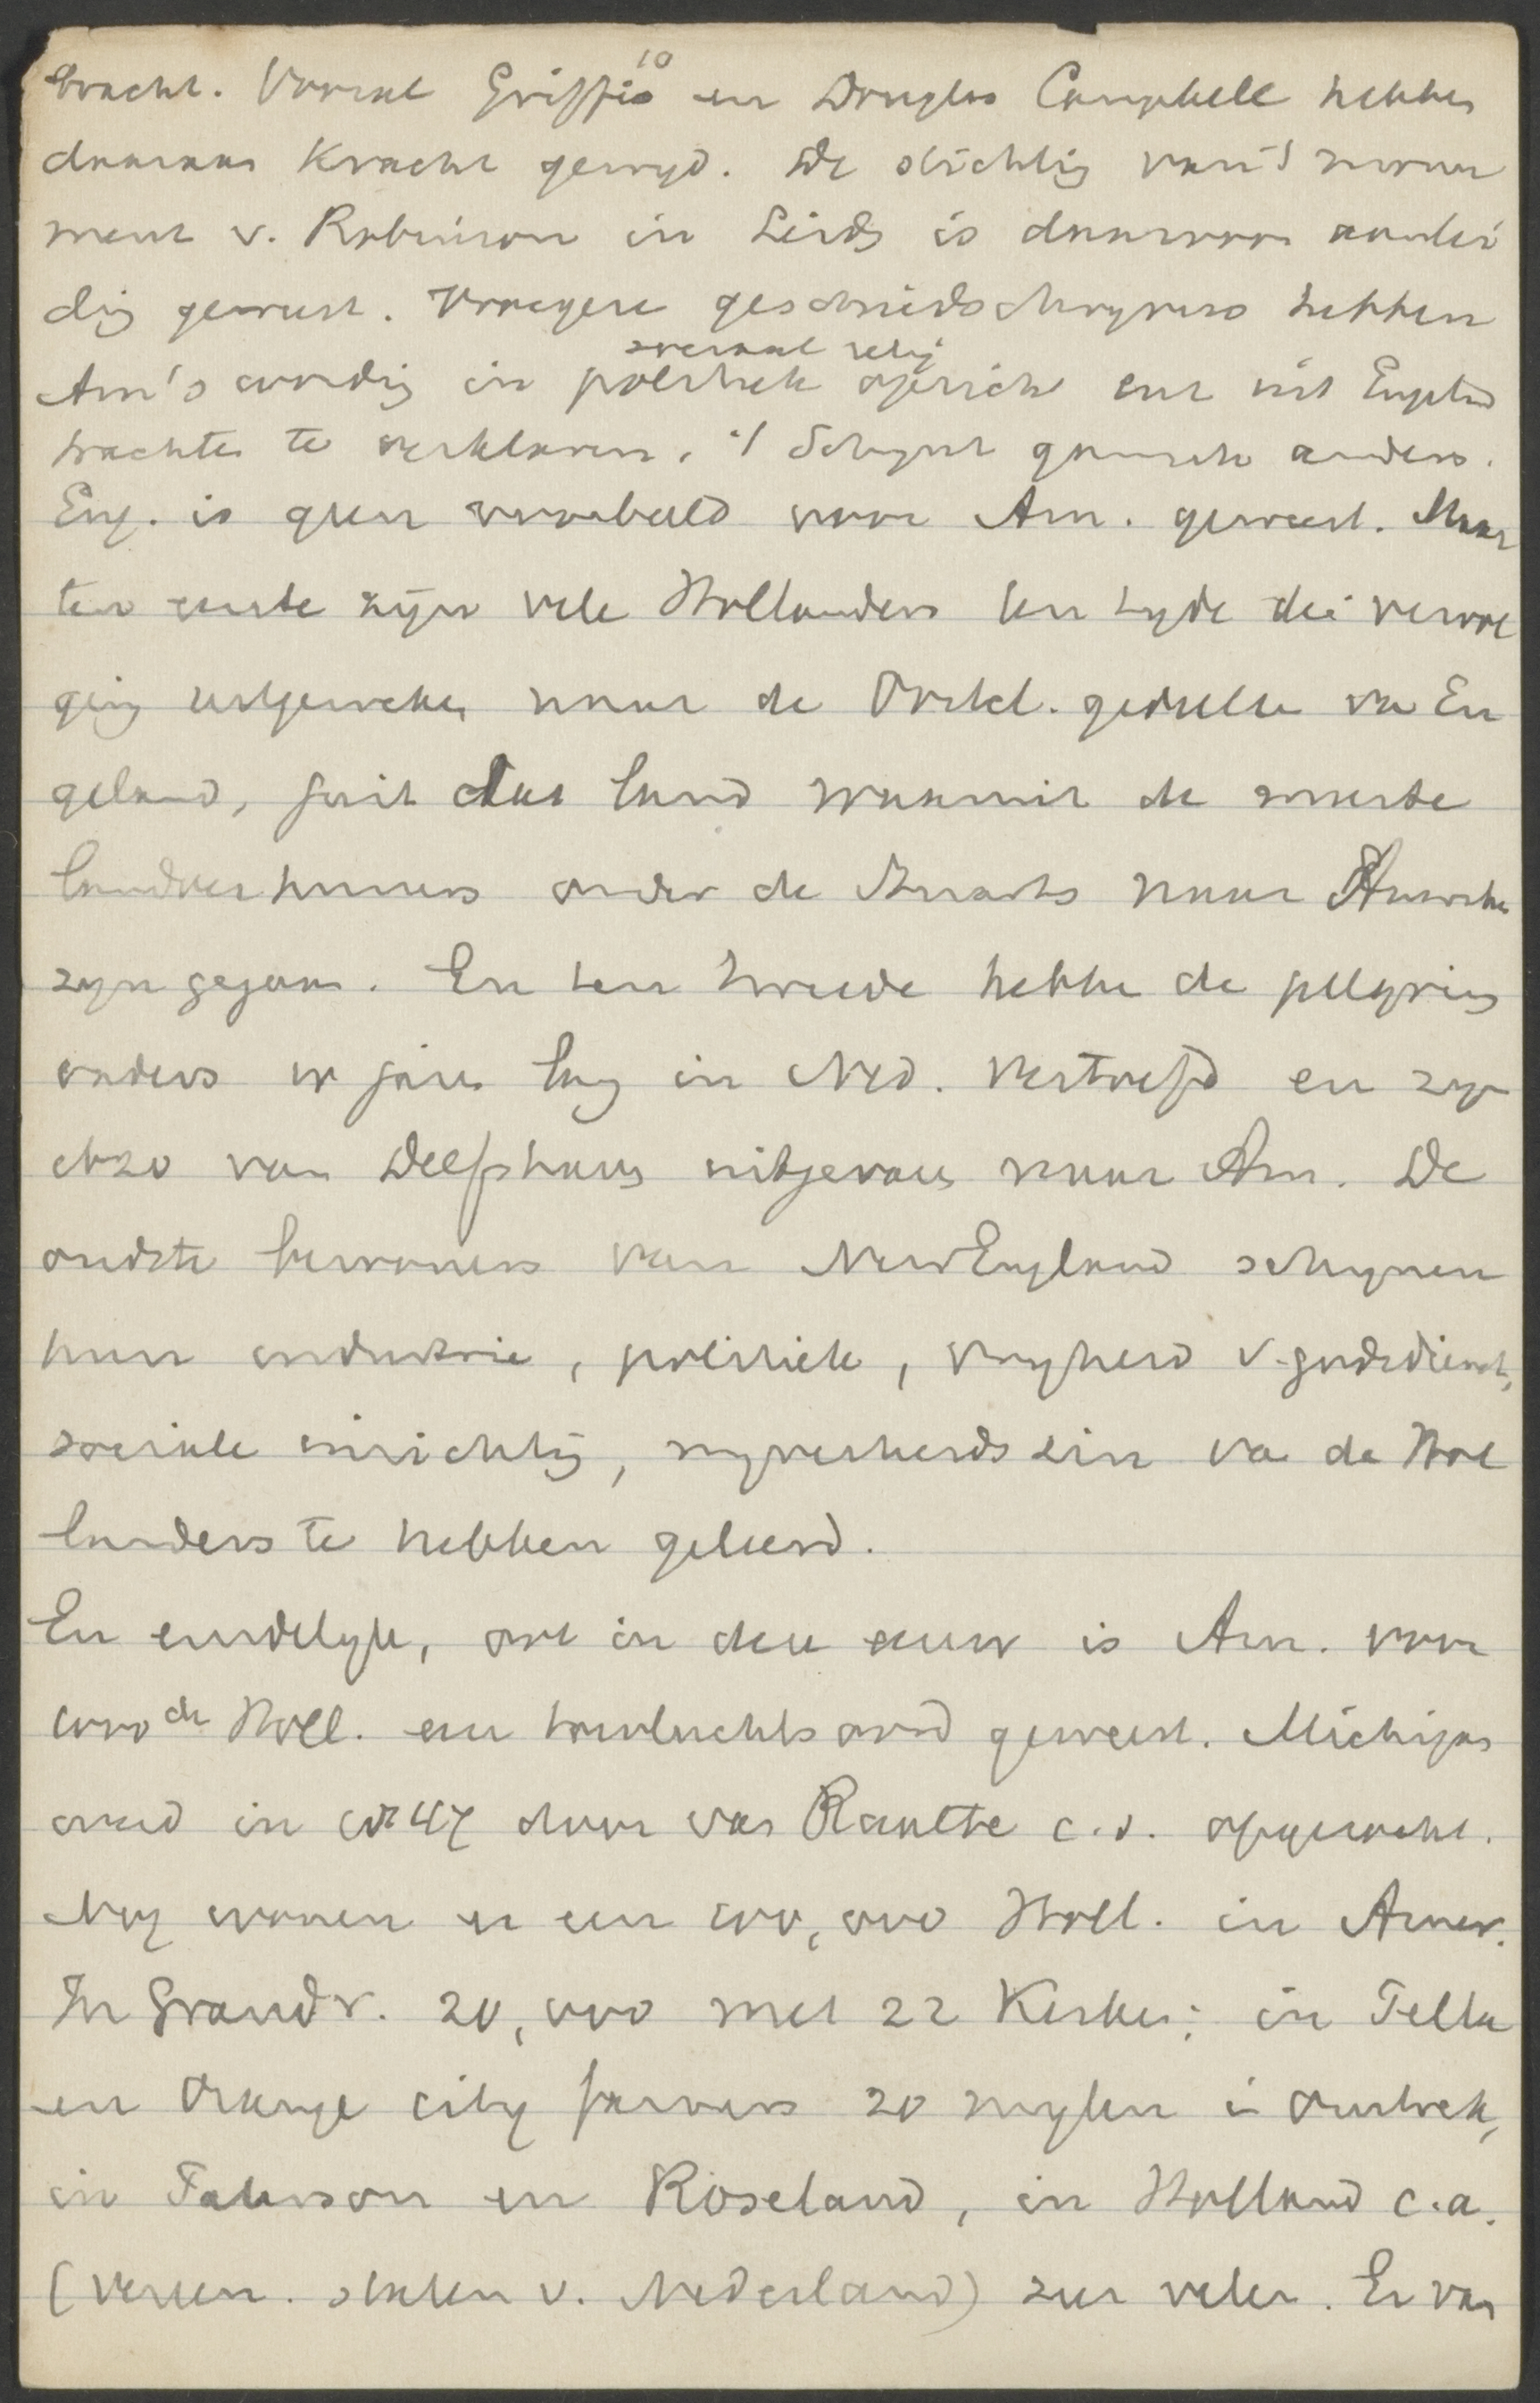 bracht. Vooral Griffis en Douglas Campbell hebben
10
daaraan kracht gewyd. De stichtig van 't monu
ment v. Robinson in Leids is daarvoor aanlei
dig geweest. Vroegere geschiedschryvers hebben
sociaal relig
Am's wordig in politiek opzicht enz uit Engeld
trachte te verklaren. 't Schynt gansch anders.
Eng. is geen voorbeeld voor Am. geweest. Maar
ten eerste zijn vele Hollanders ten tyde der vervol
ging uitgeweken naar de Oostel. gedeelte va En
geland, juist dat land waaruit de meeste
landverhuizers onder de Stuarts naar Amerika
zyn gegaan. En ten tweede hebbe de pelgrims
vaders er jare lang in Ned. vertoefd en zyn
alzo van Delfshaven uitgevaren naar Am. De
oudste bewoners van New England schynen
hun industrie, politiek, vryheid v. godsdienst,
sociale inrichtig, nyverheidszin va de Hol
landers te hebben geleerd.
En eindelyk, ook in deze eeuw is Am. voor
1000de Holl. een toevluchtsoord geweest. Michigan
werd in 1847 door van Raalte c.s. opgezocht.
Nog wonen er een 100,000 Holl. in Amer.
In Grand r. 20,000 met 22 Kerken; in Pella
en Orange city farmers 20 mylen i omtrek,
in Paterson en Roseland, in Holland c.a.
(Vereen. staten v. Nederland) zeer velen. Er van